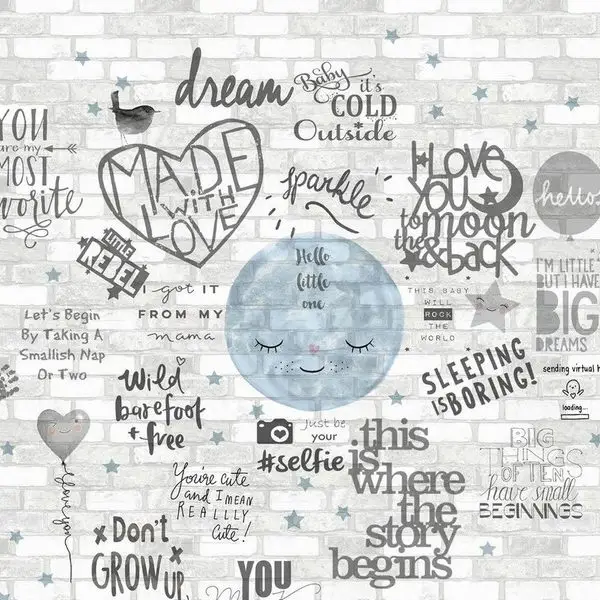 YOU
are my
MOST
dream
Baby
it's
COLD
Outside
MADE
WITH
LOVE
sparkle
I LOVE
YOU
to
the
moon
& back
hello
LITTLE
REBEL
Hello
little
one
I got it
FROM MY
mama
THIS BABY
WILL
ROCK
THE
WORLD
I'M LITTLE
BUT I HAVE
BIG
DREAMS
Let's Begin
By Taking A
Smallish Nap
Or Two
SLEEPING
IS BORING!
sending virtual h
loading...
Wild
barefoot
+ free
Just be
your
#selfie
.this
is
where
the
story
begins
BIG
THINGS
OFTEN
have small
BEGINNINGS
I love you
You're cute
and I MEAN
REALLLY
Cute!
Don't
GROW UP
YOU